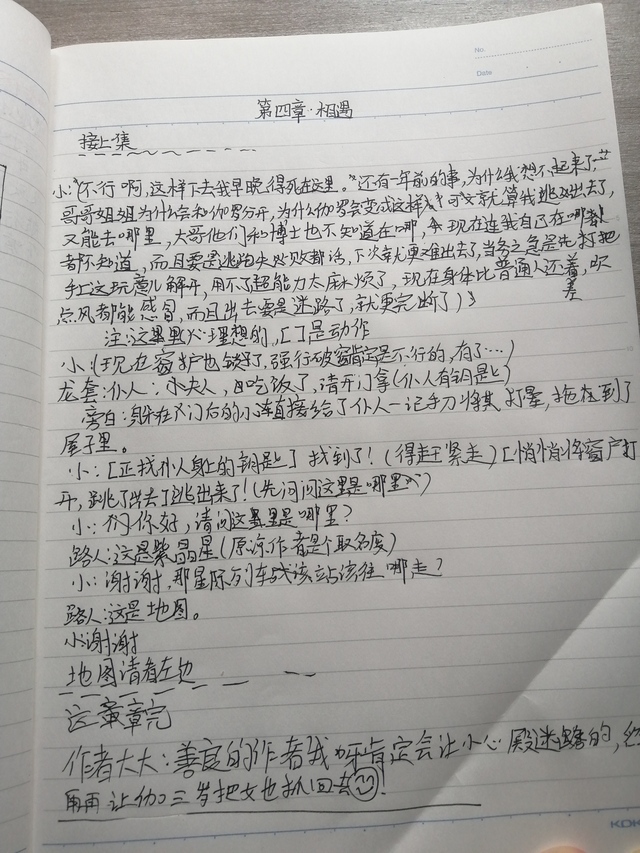 No.
Date
第四章·相遇
接上集
小:(不行啊,这样下去我早晚得死在这里。还有一年前的事,为什么我想不起来了,
哥哥姐姐为什么会和伽罗分开,为什么伽罗会变成这样 可就算我逃出去了,
又能去哪里,大哥他们和博士也不知道在哪,现在连我自己在哪
都不知道,而且要是逃跑失败的话,下次就更难出去了,当务之急是先把
手上这玩意儿解开,用不了超能力太麻烦了,现在身体比普通人还差,吹
点风都能感冒,而且出去要是迷路了,就更完断了)
注:这里是心理想的,[ ]是动作
小:(现在窗户也锁了,强行破窗肯定是不行的,有了…)
龙套:仆人:小夫人,吃饭了,请开门拿(仆人有钥匙)
旁白:躲在门后的小连直接给了仆人一记手刀将其打晕,拖到了
屋子里。
小:[正找仆人身上的钥匙]找到了!(得赶紧走)[悄悄将窗户打
开,跳了出去]逃出来了!(先问问这里是哪里)
小:你好,请问这里是哪里?
路人:这是紫晶星(原谅作者是个取名废)
小:谢谢,那星际列车站该往哪走?
路人:这是地图。
小谢谢
地图请看左边
这章完
作者大大:善良的作者我呀肯定会让小心殿迷路的,
再让伽三岁把女也抓回去!
KOK